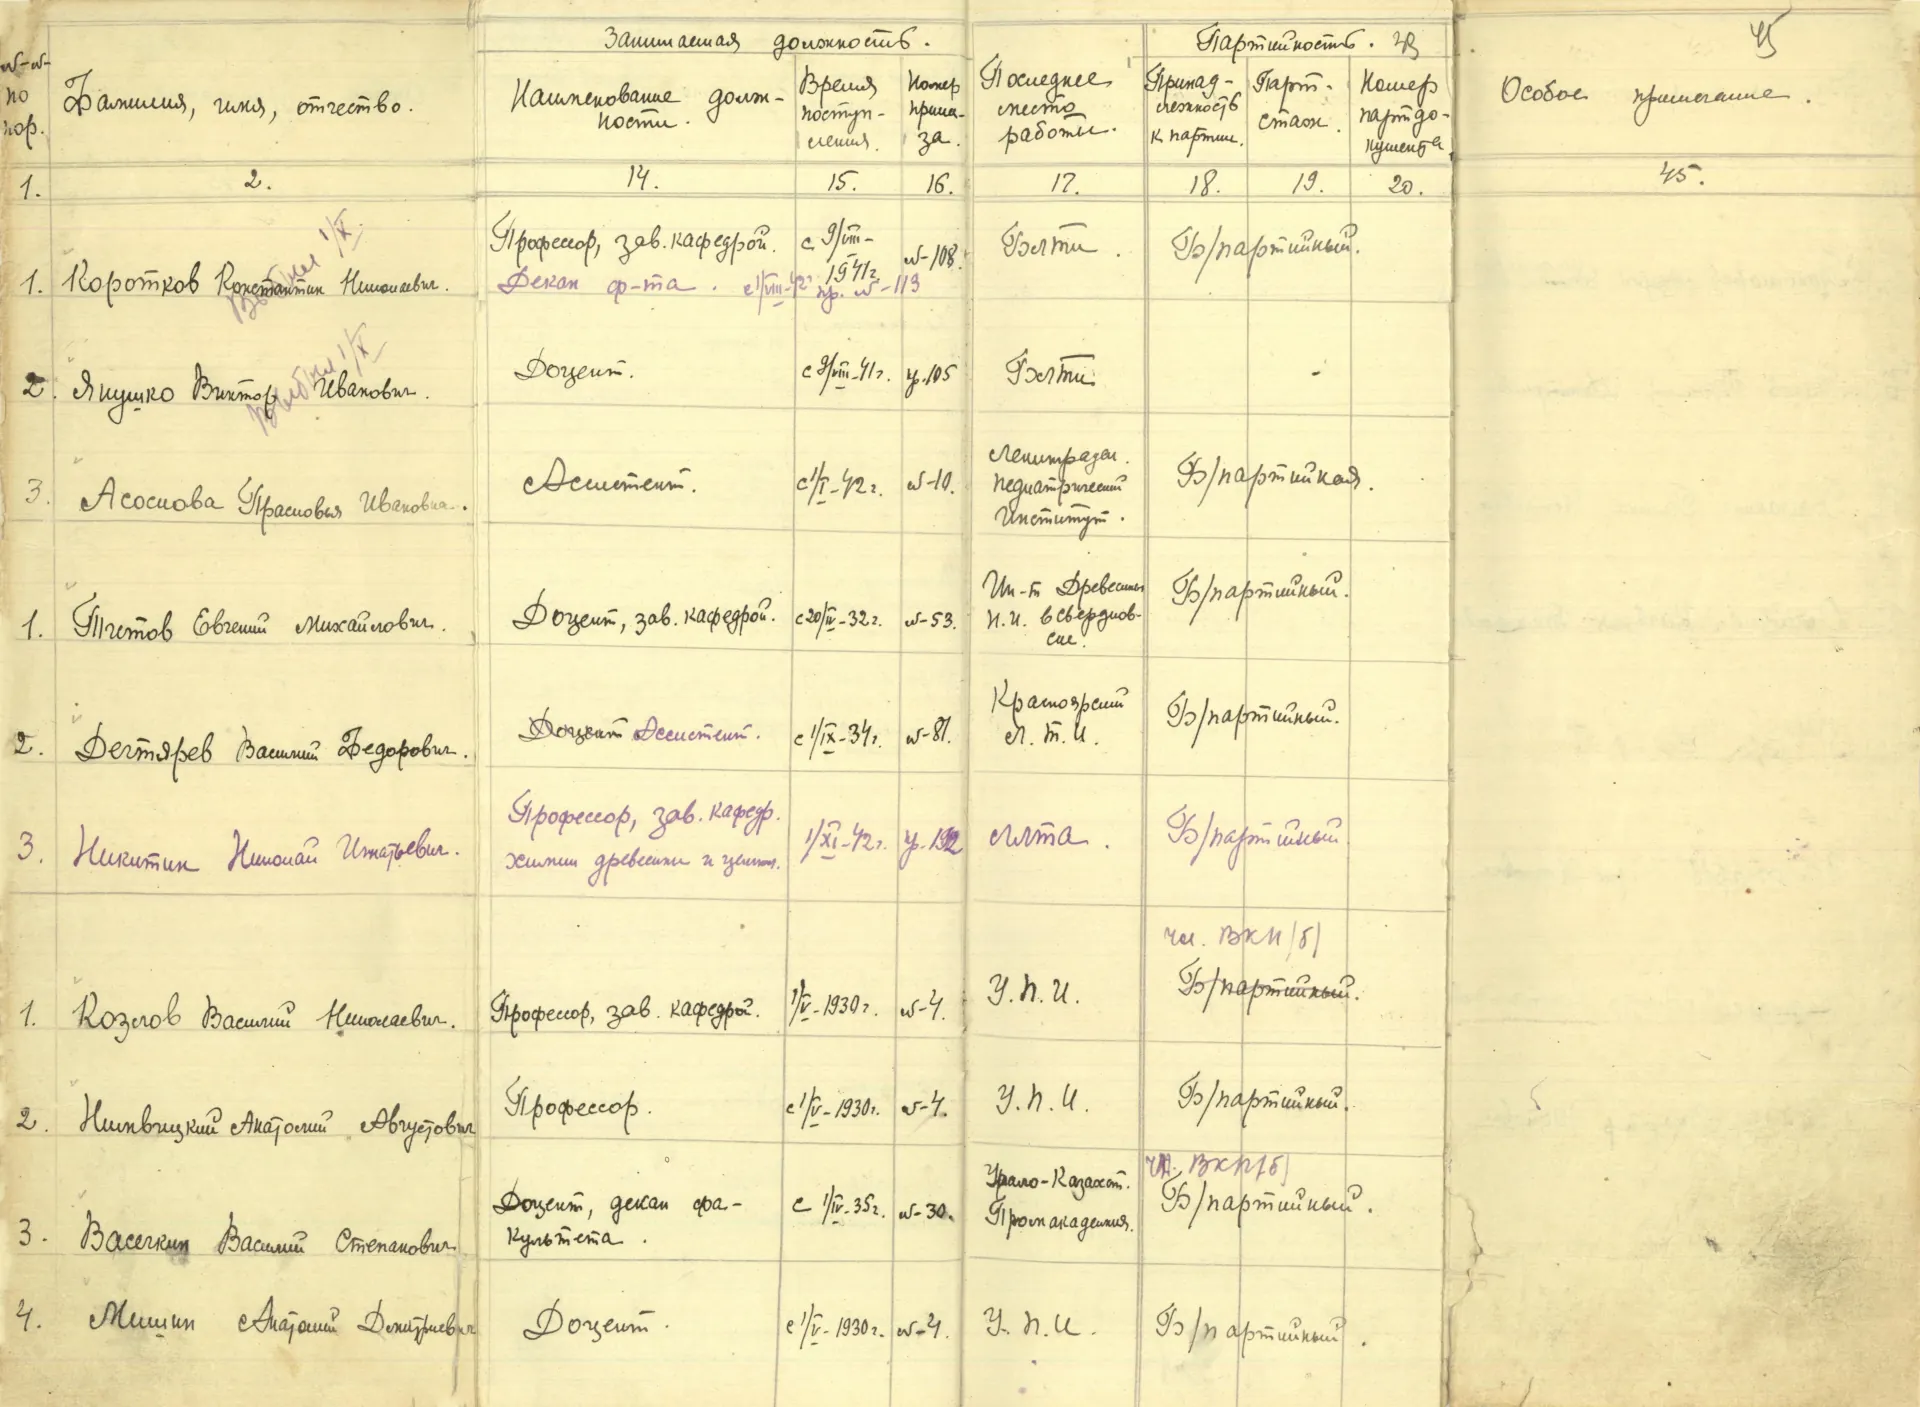 Занимаемая должность.
Партийность. 43
45
№-№
по
пор.
Фамилия, имя, отчество.
Наименование долж-
ности.
Время
поступ-
ления.
Номер
прика-
за.
Последнее
место
работы.
Принад-
лежность
к партии.
Парт-
стаж.
Номер
партдо-
кумента.
Особое примечание.
1. 2. 14. 15. 16. 17. 18. 19. 20. 45.
Выбыл 1/X
1. Коротков Константин Николаевич.
Профессор, зав. кафедрой.
Декан ф-та. с 1/VIII-42г пр. №-113
с 9/VIII-
1941г.
№-108.
Бэлти.
Б/партийный.
Выбыл 1/X
2. Янушко Виктор Иванович.
Доцент.
с 9/VIII-41г.
пр. 105
Бэлти
-
3. Асоснова Прасковья Ивановна.
Ассистент.
с 1/I-42г.
№-10.
Ленинградск.
Педиатрический
Институт.
Б/партийная.
1. Тистов Евгений Михайлович.
Доцент, зав. кафедрой.
с 20/IV-32г.
№-53.
Ин-т Древесины
Н.И. в Свердлов-
ске.
Б/партийный.
2. Дегтярев Василий Федорович.
Доцент Ассистент.
с 1/IX-34г.
№-81.
Красноярский
Л.Т.И.
Б/партийный.
3. Никитин Николай Игнатьевич.
Профессор, зав. кафедр.
химии древесины и целлюл.
1/XI-42г.
пр. 192
Лта.
Б/партийный.
1. Козлов Василий Николаевич.
Профессор, зав. кафедрой.
1/V-1930г.
№-4.
У.П.И.
чл. ВКП/б/
Б/партийный.
2. Анатолий Августович
Профессор.
с 1/V-1930г.
№-4.
У.П.И.
Б/партийный.
3. Васечкин Василий Степанович
Доцент, декан фа-
культета.
с 1/IV-35г.
№-30.
Урало-Казахст.
Промакадемия.
чл. ВКП/б/
Б/партийный.
4. Мишин Анатолий Дмитриевич
Доцент.
с 1/V-1930г.
№-4.
У.П.И.
Б/партийный.